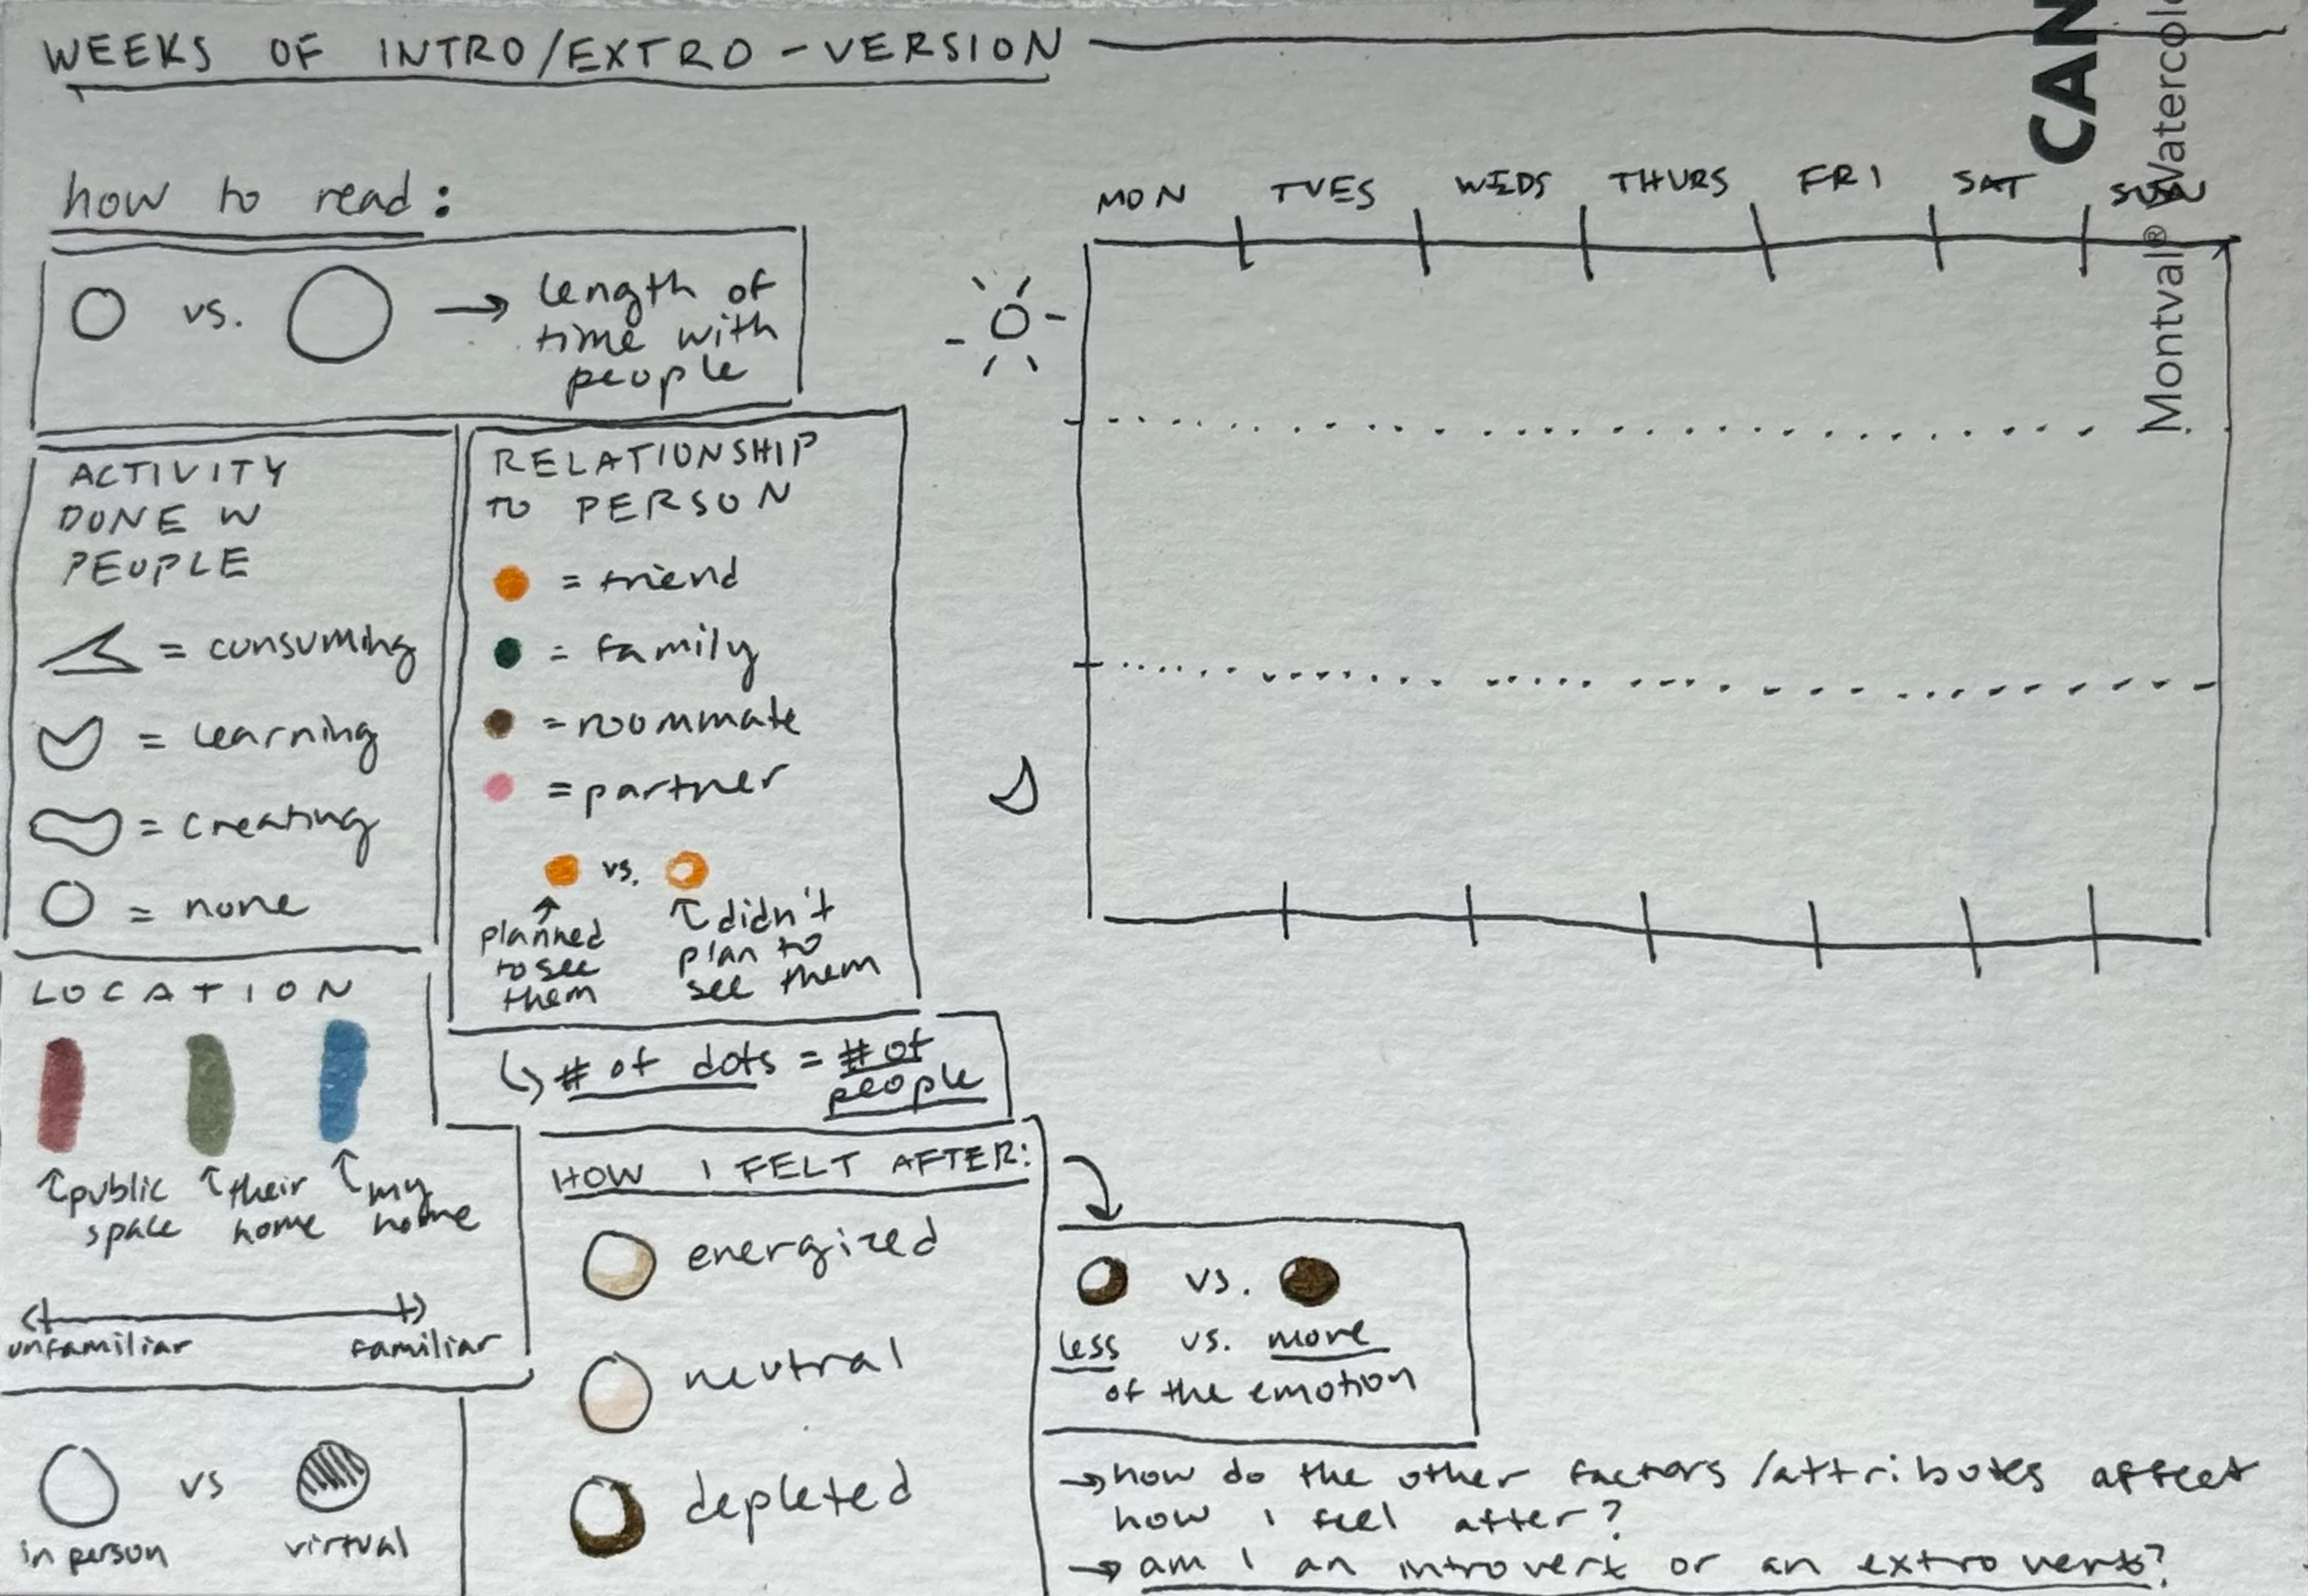 WEEKS OF INTRO/EXTRO-VERSION
how to read:
vs. → length of
time with
people
ACTIVITY
DONE W
PEOPLE
= consuming
= learning
= creating
= none
RELATIONSHIP
TO PERSON
= friend
= family
= roommate
= partner
vs.
planned
to see
them
didn't
plan to
see them
# of dots = # of
people
LOCATION
public
space
their
home
my
home
unfamiliar
familiar
vs
in person
virtual
HOW I FELT AFTER:
energized
neutral
depleted
vs.
less vs. more
of the emotion
→ how do the other factors/attributes affect
how i feel after?
→ am i an introvert or an extrovert?
MON TUES WEDS THURS FRI SAT SUN
CAN
Montval® Watercol